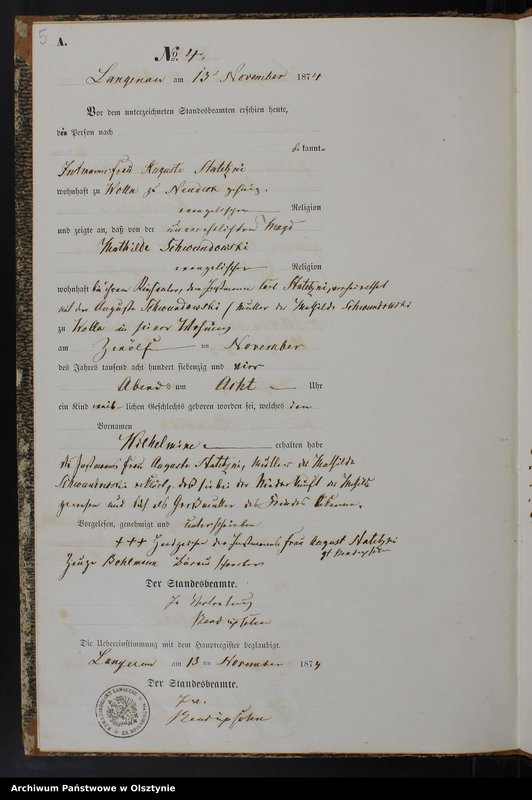 5
A.
No. 4.
Langenau am 13t November 1874
Vor dem unterzeichneten Standesbeamten erschien heute,
die Person nach
bekannt.
Instmannsfrau Auguste Statetzni
wohnhaft zu Wolla zu Neudeck gehörig.
evangelischen Religion
und zeigte an, daß von der unverehelichten Magd
Mathilde Schwandowski
evangelischer Religion
wohnhaft bei ihrem Carl Statetzni
mit der Auguste Schwandowski Mutter der Mathilde Schwandowski
zu Wolla in seiner Wohnung
am Zwölf ten November
des Jahres tausend acht hundert siebenzig und vier
Abends um Acht Uhr
ein Kind weiblichen Geschlechts geboren worden sei, welches den
Vornamen
Wilhelmine erhalten habe
die Instmanns Frau Auguste Statetzni, Mutter der Mathilde
Schwandowski erklärt, daß sie bei der Niederkunft der Mathilde
gewesen und sich als Großmutter des Kindes
Vorgelesen, genehmigt und unterschrieben
+++ Handzeichen der Instmanns Frau August Statetzni
Zeuge Bohlmann
Der Standesbeamte.
In Vertretung
Die Uebereinstimmung mit dem Hauptregister beglaubigt.
Langenau am 13 ten November 1874
Der Standesbeamte.
Archiwum Państwowe w Olsztynie